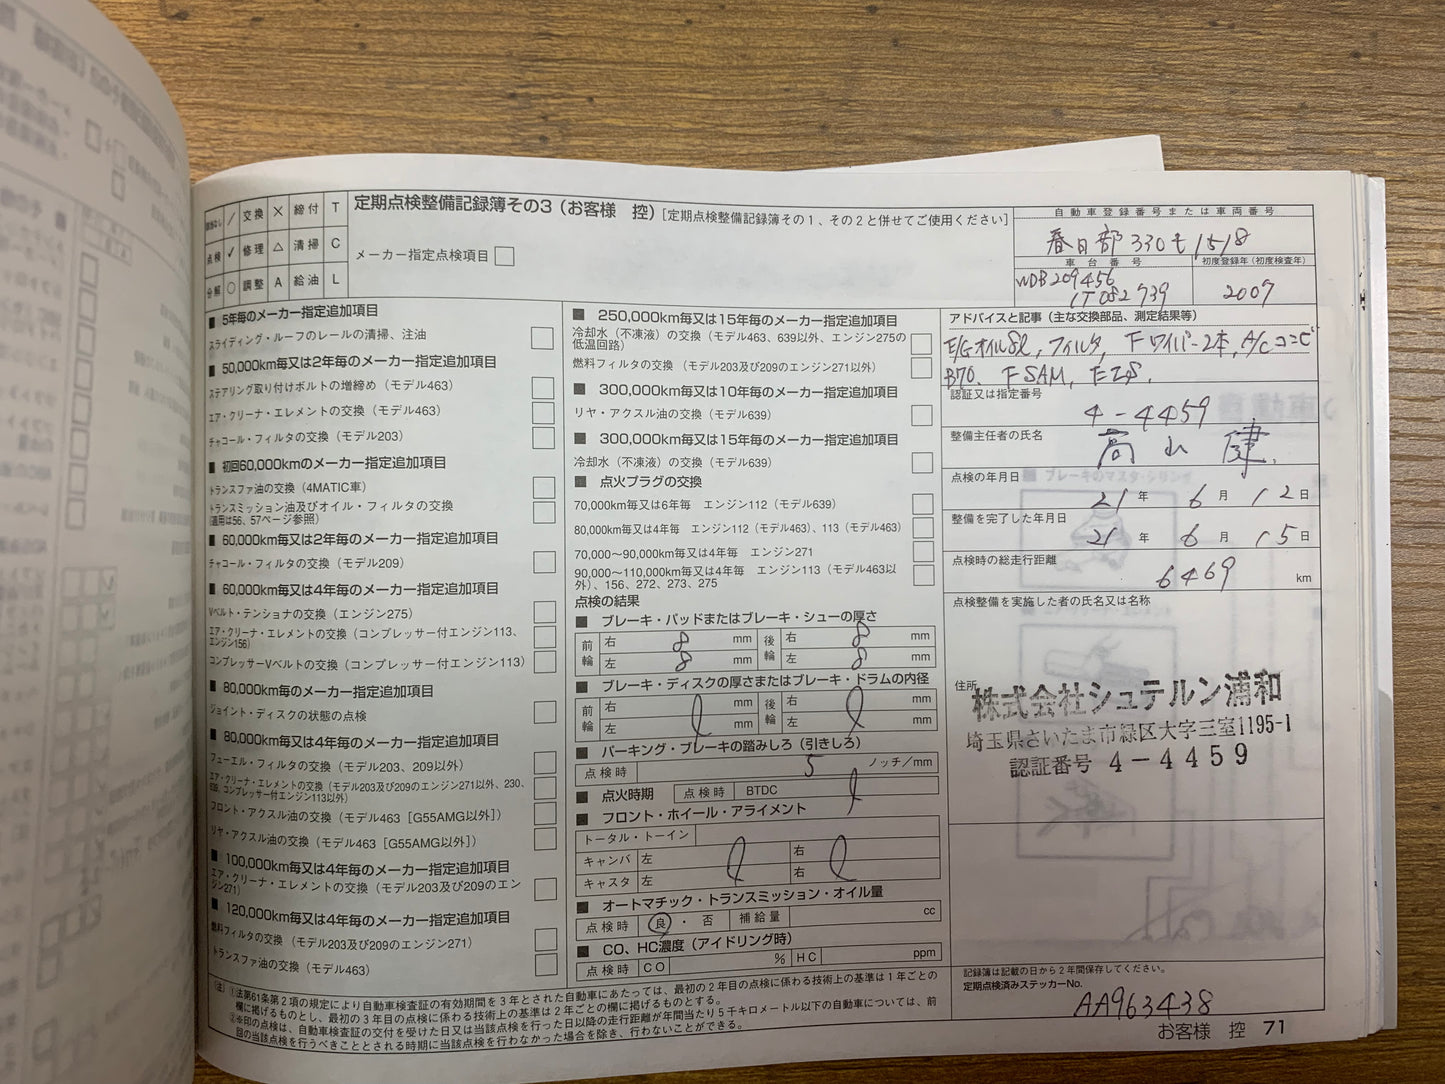 点検なし ／ 交換 × 締付 T
点検 ✓ 修理 △ 清掃 C
分解 ○ 調整 A 給油 L
定期点検整備記録簿その3（お客様　控）［定期点検整備記録簿その1、その2と併せてご使用ください］
メーカー指定点検項目
自動車登録番号または車両番号
春日部 330 も 1518
車台番号
初度登録年（初度検査年）
WDB209456
1T082739
2007
■ 5年毎のメーカー指定追加項目
スライディング・ルーフのレールの清掃、注油
■ 50,000km毎又は2年毎のメーカー指定追加項目
ステアリング取り付けボルトの増締め（モデル463）
エア・クリーナ・エレメントの交換（モデル463）
チャコール・フィルタの交換（モデル203）
■ 初回60,000kmのメーカー指定追加項目
トランスファ油の交換（4MATIC車）
トランスミッション油及びオイル・フィルタの交換
（適用は56、57ページ参照）
■ 60,000km毎又は2年毎のメーカー指定追加項目
チャコール・フィルタの交換（モデル209）
■ 60,000km毎又は4年毎のメーカー指定追加項目
Vベルト・テンショナの交換（エンジン275）
エア・クリーナ・エレメントの交換（コンプレッサー付エンジン113、
エンジン156）
コンプレッサーVベルトの交換（コンプレッサー付エンジン113）
■ 80,000km毎のメーカー指定追加項目
ジョイント・ディスクの状態の点検
■ 80,000km毎又は4年毎のメーカー指定追加項目
フューエル・フィルタの交換（モデル203、209以外）
エア・クリーナ・エレメントの交換（モデル203及び209のエンジン271以外、230、
639、コンプレッサー付エンジン113以外）
フロント・アクスル油の交換（モデル463［G55AMG以外］）
リヤ・アクスル油の交換（モデル463［G55AMG以外］）
■ 100,000km毎又は4年毎のメーカー指定追加項目
エア・クリーナ・エレメントの交換（モデル203及び209のエン
ジン271）
■ 120,000km毎又は4年毎のメーカー指定追加項目
燃料フィルタの交換（モデル203及び209のエンジン271）
トランスファ油の交換（モデル463）
■ 250,000km毎又は15年毎のメーカー指定追加項目
冷却水（不凍液）の交換（モデル463、639以外、エンジン275の
低温回路）
燃料フィルタの交換（モデル203及び209のエンジン271以外）
■ 300,000km毎又は10年毎のメーカー指定追加項目
リヤ・アクスル油の交換（モデル639）
■ 300,000km毎又は15年毎のメーカー指定追加項目
冷却水（不凍液）の交換（モデル639）
■ 点火プラグの交換
70,000km毎又は6年毎　エンジン112（モデル639）
80,000km毎又は4年毎　エンジン112（モデル463）、113（モデル463）
70,000〜90,000km毎又は4年毎　エンジン271
90,000〜110,000km毎又は4年毎　エンジン113（モデル463以
外）、156、272、273、275
点検の結果
■ ブレーキ・パッドまたはブレーキ・シューの厚さ
前輪 右 8 mm 後輪 右 8 mm
左 8 mm 左 8 mm
■ ブレーキ・ディスクの厚さまたはブレーキ・ドラムの内径
前輪 右 mm 後輪 右 mm
左 mm 左 mm
■ パーキング・ブレーキの踏みしろ（引きしろ）
点検時 5 ノッチ/mm
■ 点火時期 点検時 BTDC
■ フロント・ホイール・アライメント
トータル・トーイン
キャンバ 左 右
キャスタ 左 右
■ オートマチック・トランスミッション・オイル量
点検時 良・否 補給量 cc
■ CO、HC濃度（アイドリング時）
点検時 CO % HC ppm
アドバイスと記事（主な交換部品、測定結果等）
E/Gオイル8l, フィルタ, Fワイパー2本, A/Cコンビ
B70. F SAM, EZS.
認証又は指定番号
4-4459
整備主任者の氏名
高山 健
点検の年月日
21 年 6 月 12 日
整備を完了した年月日
21 年 6 月 15 日
点検時の総走行距離
6469 km
点検整備を実施した者の氏名又は名称
住所
株式会社シュテルン浦和
埼玉県さいたま市緑区大字三室1195-1
認証番号 4-4459
記録簿は記載の日から2年間保存してください。
定期点検済みステッカーNo.
AA963438
（注）①法第61条第2項の規定により自動車検査証の有効期間を3年とされた自動車にあたっては、最初の2年目の点検に係わる技術上の基準は1年ごとの
欄に掲げるものとし、最初の3年目の点検に係わる技術上の基準は2年ごとの欄に掲げるものとする。
②※印の点検は、自動車検査証の交付を受けた日又は当該点検を行った日以降の走行距離が年間当たり5千キロメートル以下の自動車については、前
回の当該点検を行うべきこととされる時期に当該点検を行わなかった場合を除き、行わないことができる。
お客様　控　71